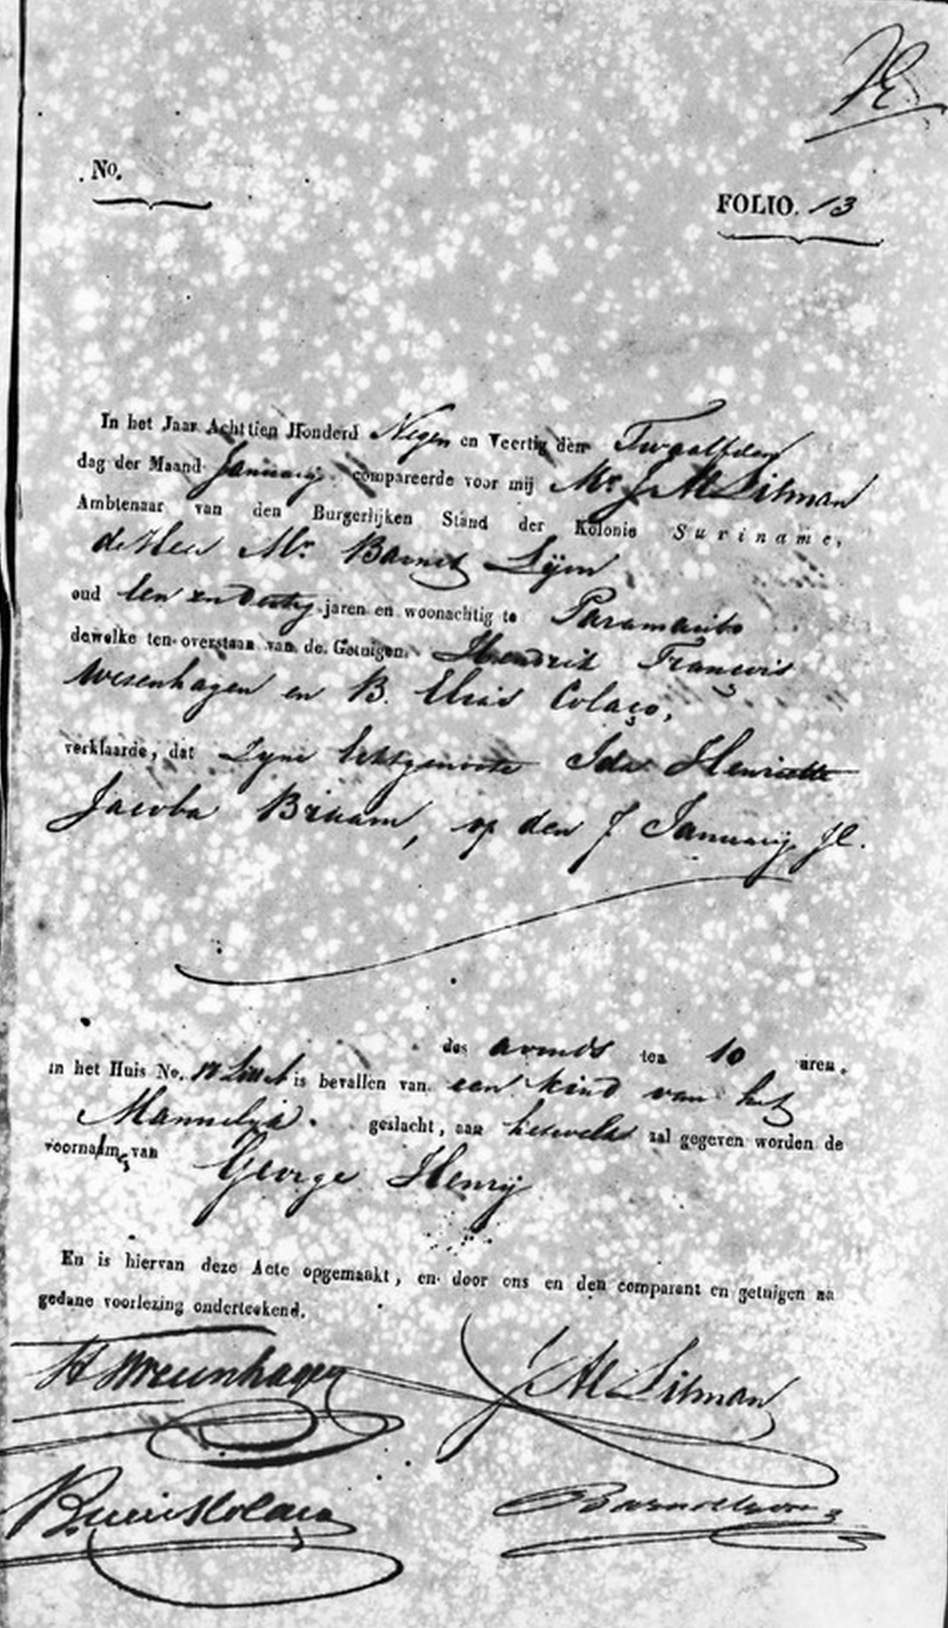 No.
FOLIO. 13
In het Jaar Achttien Honderd Negen en Veertig den Twaalfden
dag der Maand January compareerde voor mij Mr. J. M. Lisman
Ambtenaar van den Burgerlijken Stand der Kolonie Suriname,
de Heer Mr. Barnet Lijon
oud een en dertig jaren en woonachtig te Paramaribo
dewelke ten overstaan van de Getuigen Hendrik François
Wesenhagen en B. Elias Colaço,
verklaarde, dat Zyne Echtgenoote Ida Henriette
Jacoba Braam, op den 7 January jl.
des avonds ten 10 uren.
in het Huis No. is bevallen van een kind van het
Mannelijk geslacht, aan hetwelk zal gegeven worden de
voornaam van George Henry
En is hiervan deze Acte opgemaakt, en door ons en den comparant en getuigen na
gedane voorlezing onderteekend.
H Wesenhagen J M Lisman